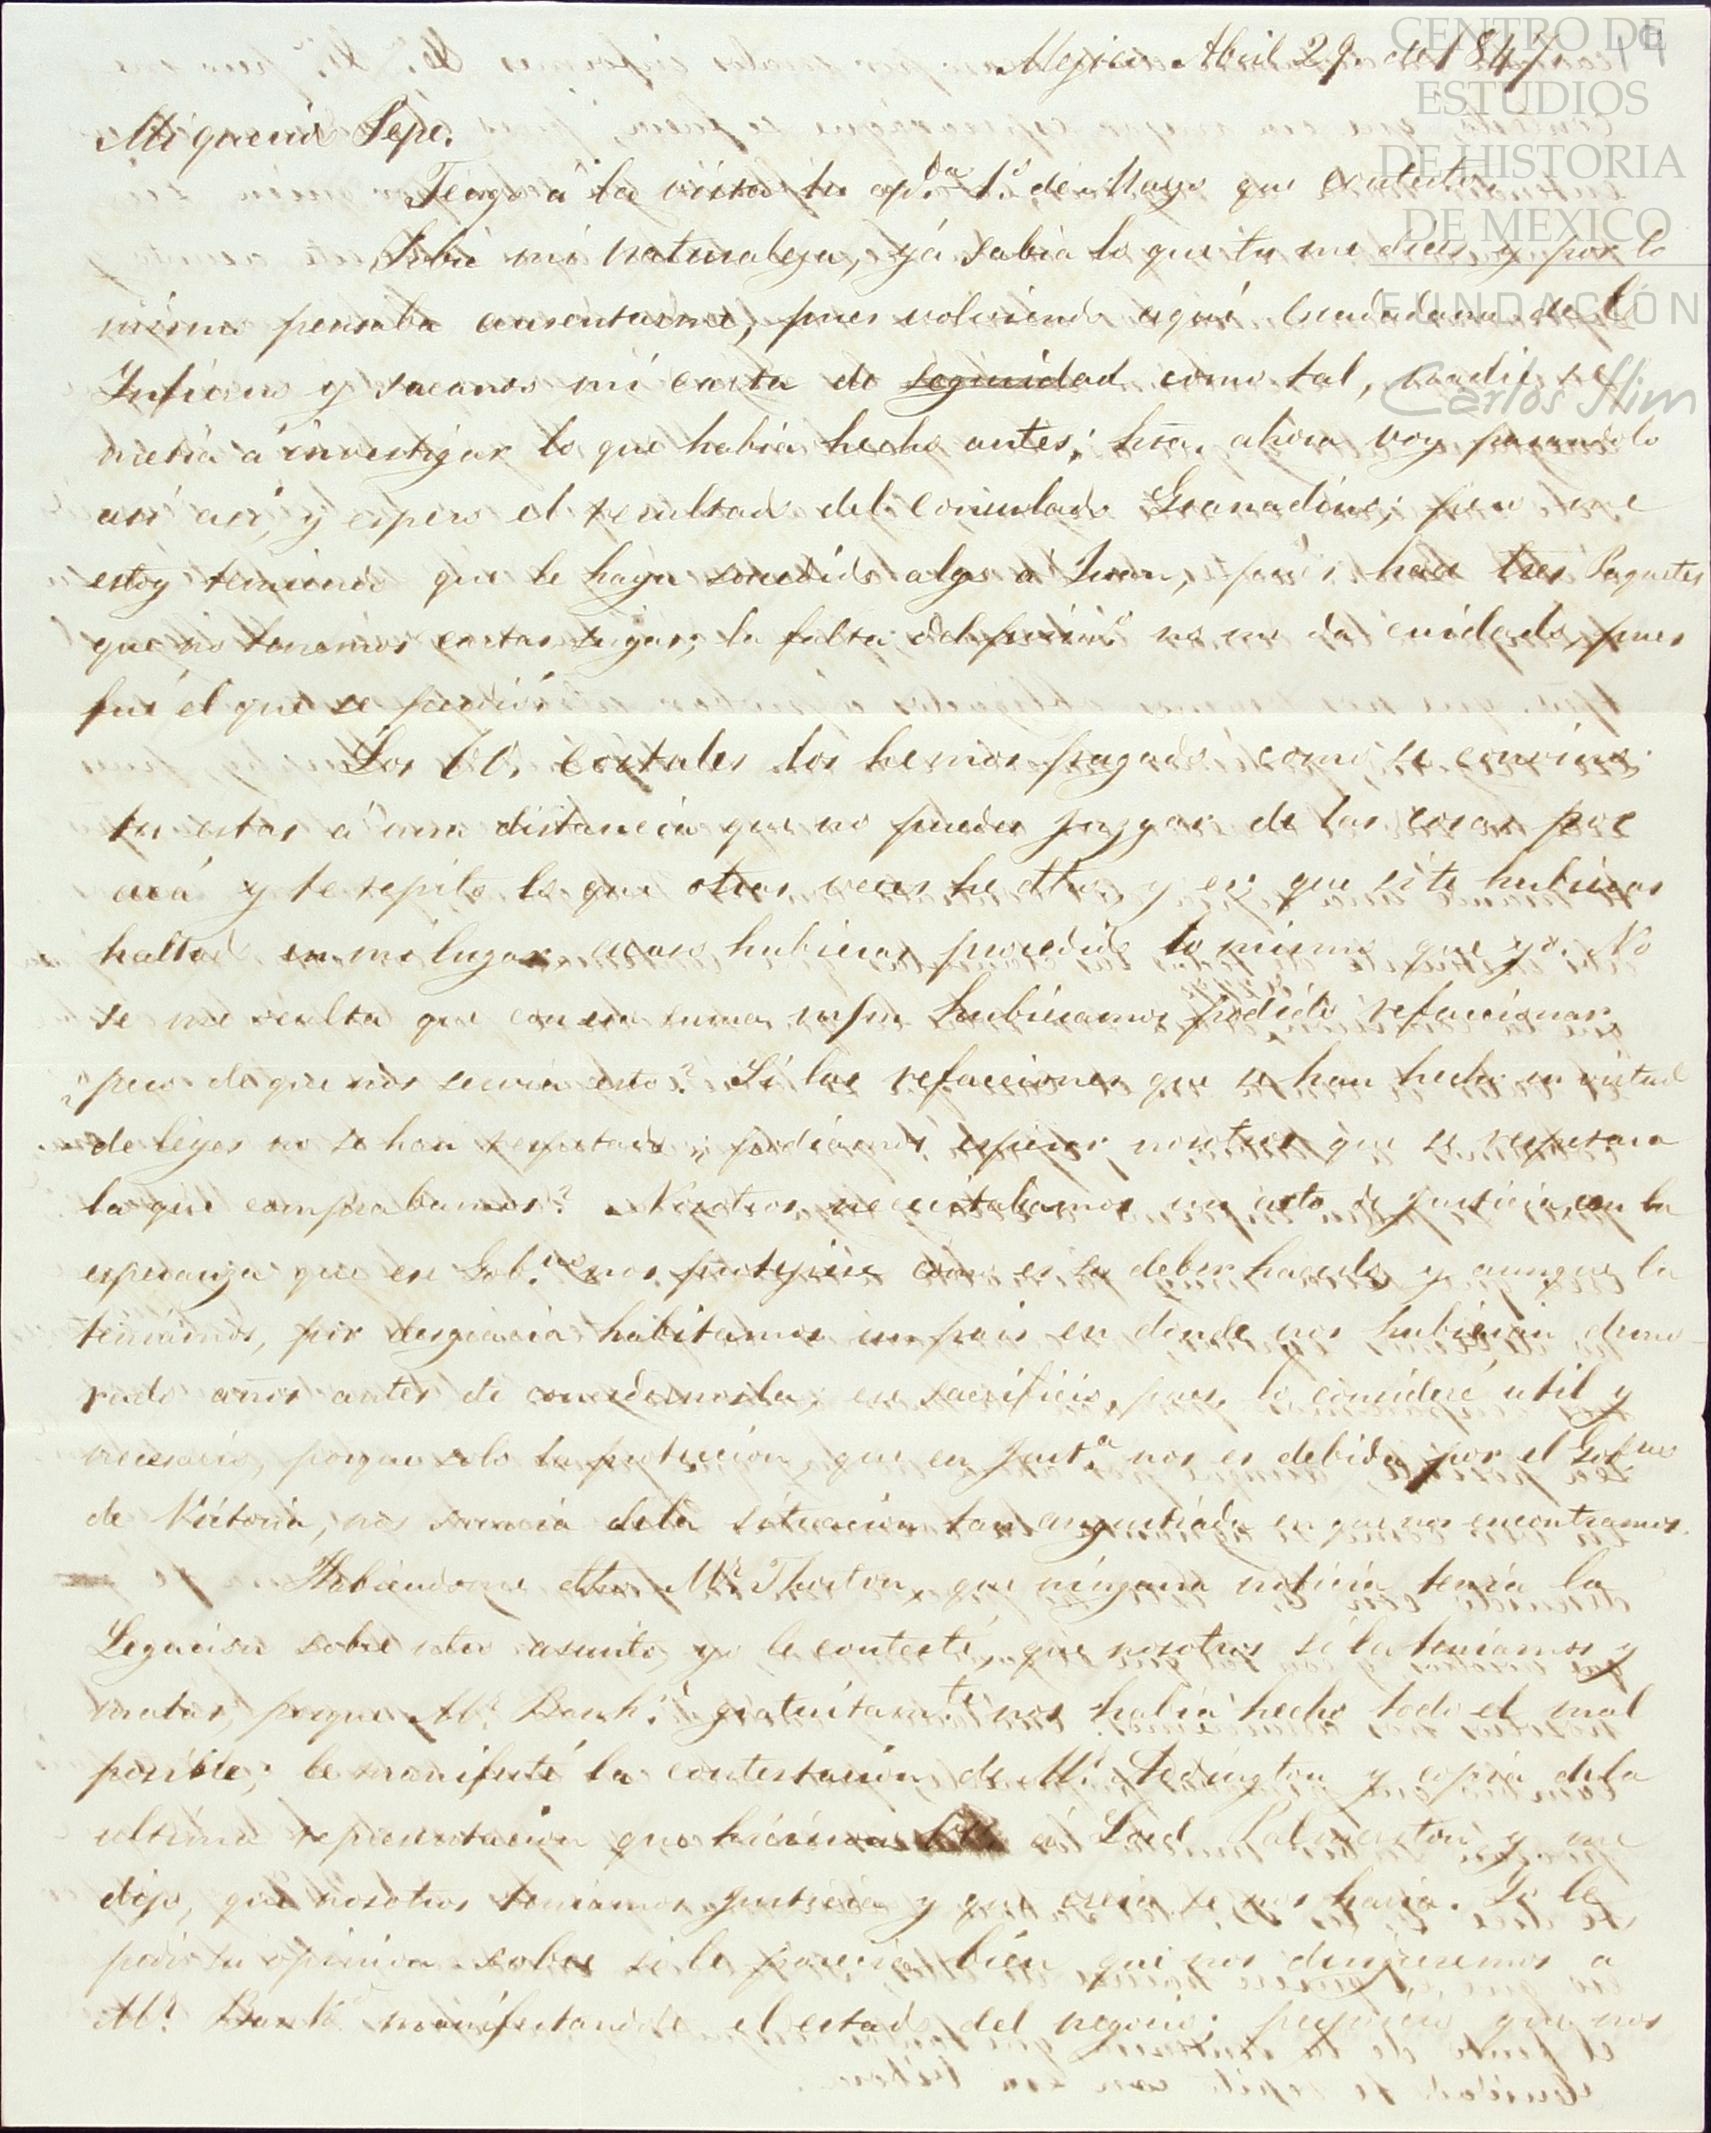 Mejico Abril 29. de 1847
19
CENTRO DE
ESTUDIOS
DE HISTORIA
DE MEXICO
FUNDACIÓN
Carlos Slim
Mi querido Pepe.
Tengo á la vista tu ap.da 1.º de Mayo que contesto.
Sobre mi naturaleza, yá sabia lo que tu me dices, y por lo
mismo pensaba ausentarme, pues volviendo aquí Ciudadano de
y sacamos mi carta de seguridad como tal, nadie se
metia á investigar lo que habia hecho antes; ahora voy pasandolo
asi asi, y espero el resultado del Consulado Granadino; pero me
estoy temiendo que le haya sucedido algo á Juan, pues hace tres Paquetes
que no tenemos cartas suyas; la falta del no me da cuidado, pues
fué el que se perdió.
Los 60. costales los hemos pagado como se convino;
tu estas á una distancia que no puedes juzgar de las cosas por
acá y te repito lo que otras veces he dho. y es, que si te hubieras
hallado en mi lugar acaso hubieras procedido lo mismo que yo. No
se me oculta que con esa suma hubieramos podido refaccionar,
pero de que nos servia esto? Si las refacciones que se han hecho en virtud
de leyes no se han respetado, podiamos esperar nosotros que se respetara
la que comprabamos? Nosotros necesitabamos un acto de justicia, con la
esperanza que ese Gob.no nos protejiese como es su deber hacerlo, y aunque la
teniamos, por desgracia habitamos un pais en donde nos hubieran demo-
rado años antes de concedernosla; ese sacrificio, pues, lo consideré util y
necesario, porque solo la proteccion, que en just.a nos es debida por el Gob.no
de Victoria, nos de la situacion tan angustiada en que nos encontramos.
Habiendome dho. Mr. Thorton, que ninguna noticia tenia la
Legacion sobre este asunto, yo le contesté, que nosotros si la teniamos y
malas, porque Mr. Bank.d gratuitam.te nos habia hecho todo el mal
posible; le manifesté la contestacion de Mr. Adington y copia de la
ultima representacion que hicieron á Lord Palmerston, y me
dijo, que nosotros teniamos justicia y que creia se nos haria. Yo le
pedi su opinion sobre si le parecia bien que nos dirijieramos a
Mr. Bank.d manifestandole el estado del negocio; que nos